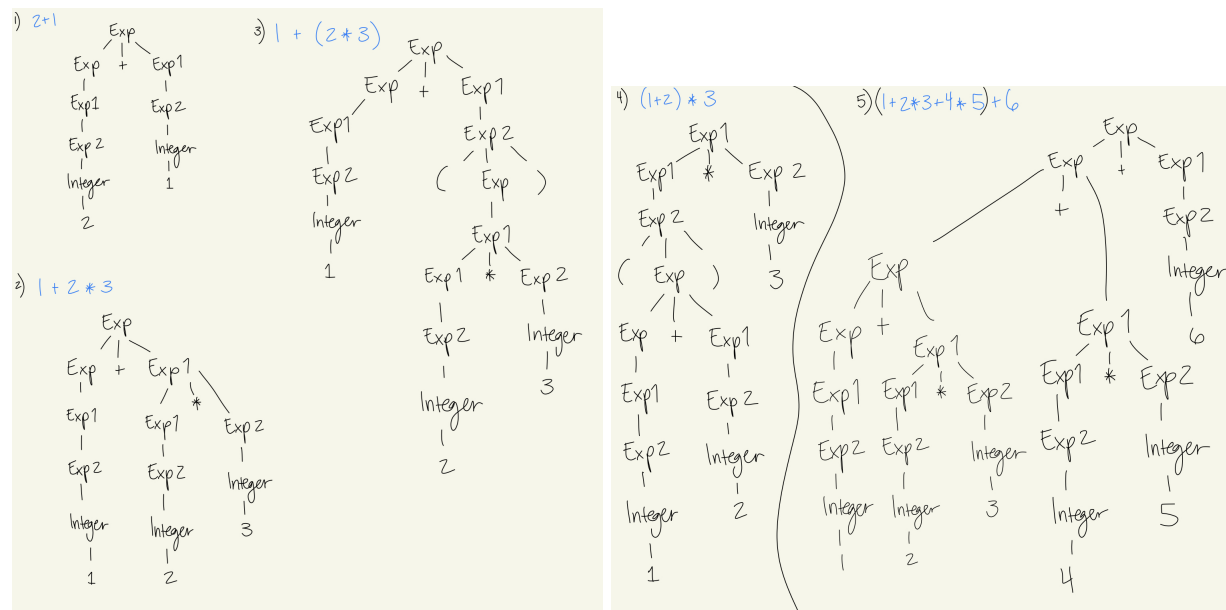 1) 2+1
Exp
Exp + Exp1
Exp1 Exp2
Exp2 Integer
Integer 1
2
2) 1 + 2 * 3
Exp
Exp + Exp1
*
Exp1 Exp1 Exp2
Exp2 Exp2 Integer
Integer Integer 3
1 2
3) 1 + (2 * 3)
Exp
Exp + Exp1
Exp1 Exp2
Exp2 ( Exp )
Integer Exp1
1 Exp1 * Exp2
Exp2 Integer
Integer 3
2
4) (1+2) * 3
Exp1
Exp1 * Exp2
Exp2 Integer
( Exp ) 3
Exp + Exp1
Exp1 Exp2
Exp2 Integer
Integer 2
1
5) (1+2*3+4*5)+6
Exp
Exp + Exp1
+ Exp2
Exp Integer
Exp + Exp1 Exp1 6
Exp1 Exp1 * Exp2 Exp1 * Exp2
Exp2 Exp2 Integer Exp2 Integer
Integer Integer 3 Integer 5
1 2 4